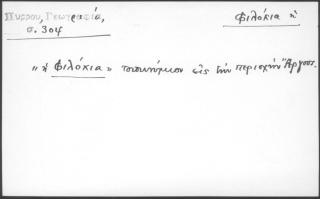 Πύρρου, Γεωγραφία,
σ. 304
Φιλόκια ἡ
"ἡ Φιλόκια" τοπωνύμιον εἰς τὴν περιοχὴν Ἄργους.